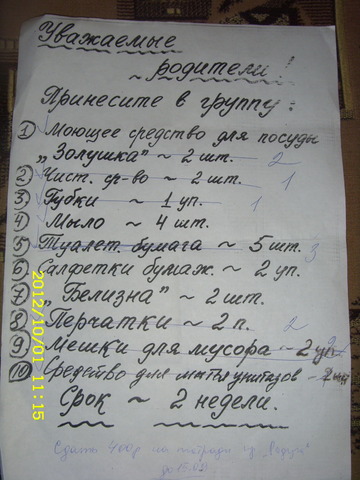 Уважаемые
родители!
Принесите в группу:
1 Моющее средство для посуды
„Золушка" ~ 2 шт. 2
2 Чист. ср-во ~ 2 шт. 1
3 Губки ~ 1 уп. 1
4 Мыло ~ 4 шт.
5 Туалет. бумага ~ 5 шт. 3
6 Салфетки бумаж. ~ 2 уп.
7 „Белизна" ~ 2 шт.
8 Перчатки ~ 2 п. 2
9 Мешки для мусора ~ 2 уп
10 Средство для мытья унитазов -
Срок ~ 2 недели.
Сдать 400р на тетради
до 15.09
2012/10/01 11:15